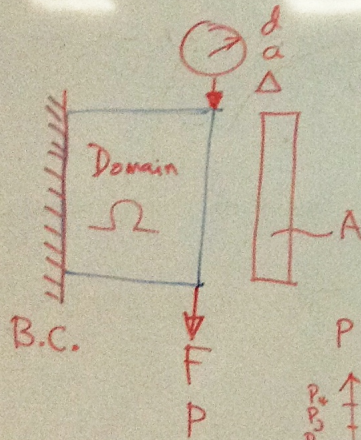 d
a
Δ
Domain
Ω
A
B.C.
F
P
P
P₄
P₃